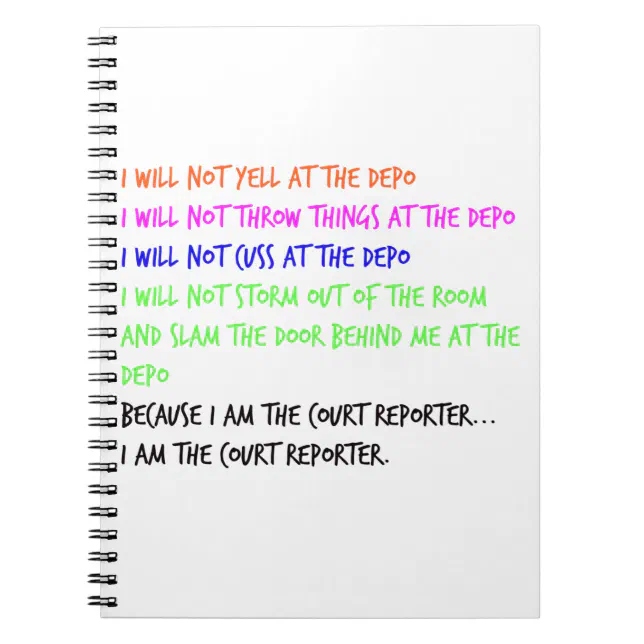 I WILL NOT YELL AT THE DEPO
I WILL NOT THROW THINGS AT THE DEPO
I WILL NOT CUSS AT THE DEPO
I WILL NOT STORM OUT OF THE ROOM
AND SLAM THE DOOR BEHIND ME AT THE
DEPO
BECAUSE I AM THE COURT REPORTER...
I AM THE COURT REPORTER.